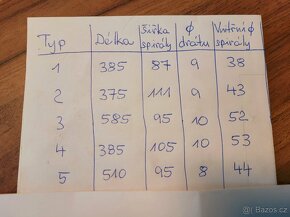 Typ Délka Šířka spirály φ drátu Vnitřní φ spirály
1 385 87 9 38
2 375 111 9 43
3 585 95 10 52
4 385 105 10 53
5 510 95 8 44
Bazos.cz